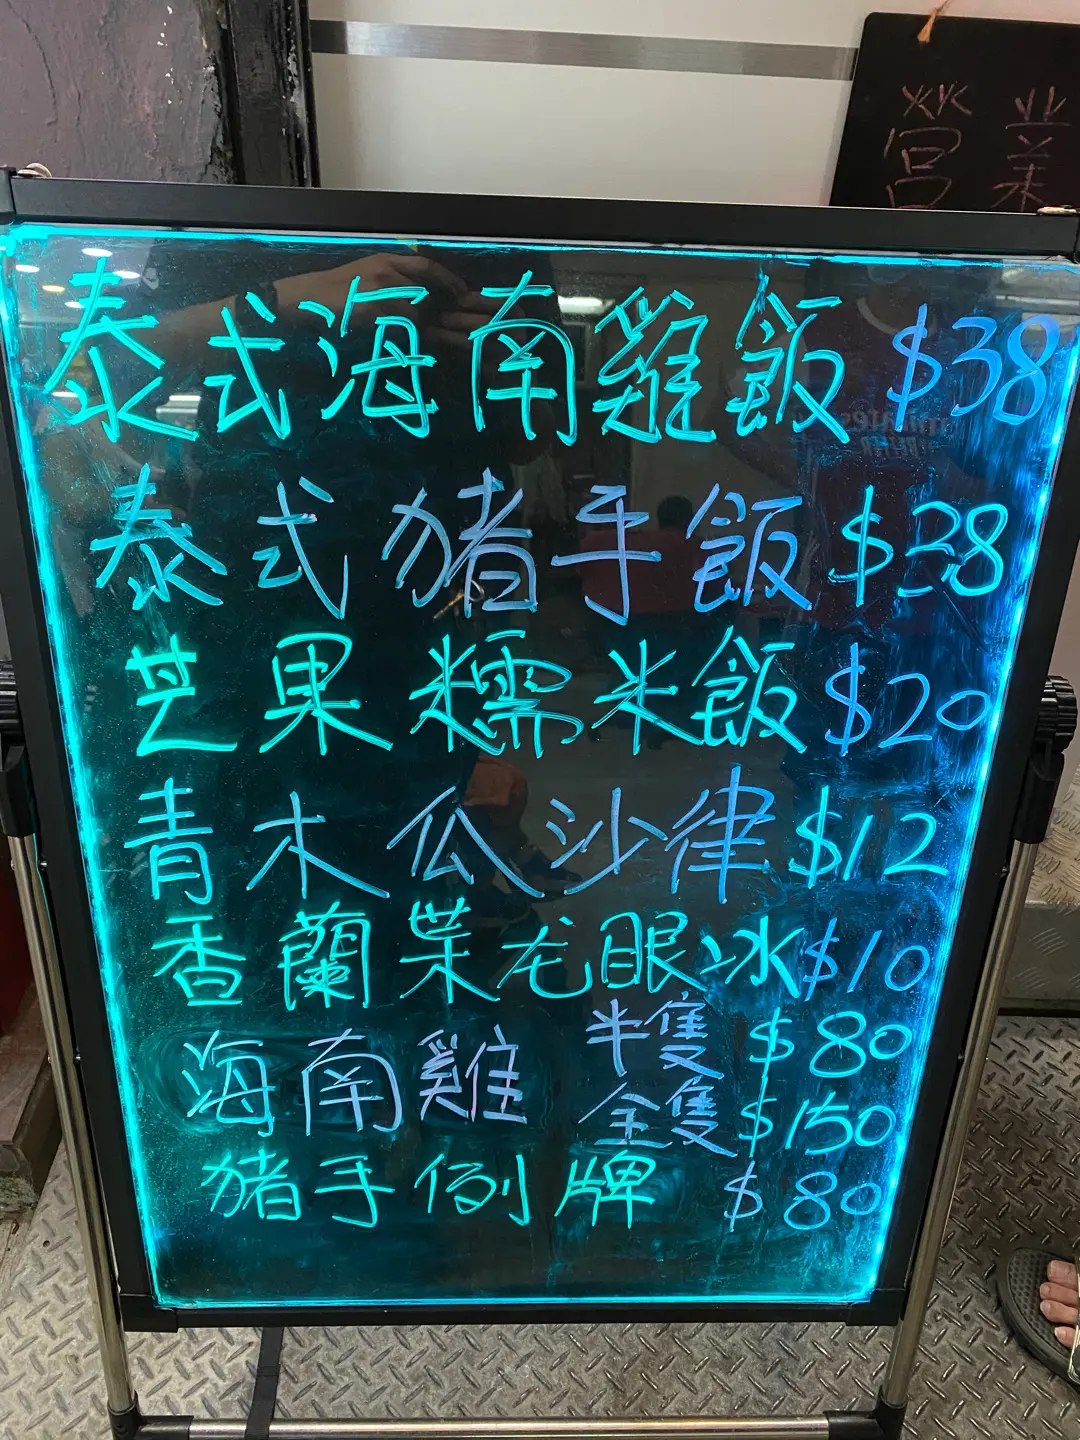 營業
泰式海南雞飯 $38
泰式猪手飯 $38
芒果糯米飯 $20
青木瓜沙律 $12
香蘭葉龙眼冰 $10
海南雞 半隻 $80
全隻 $150
猪手例牌 $80